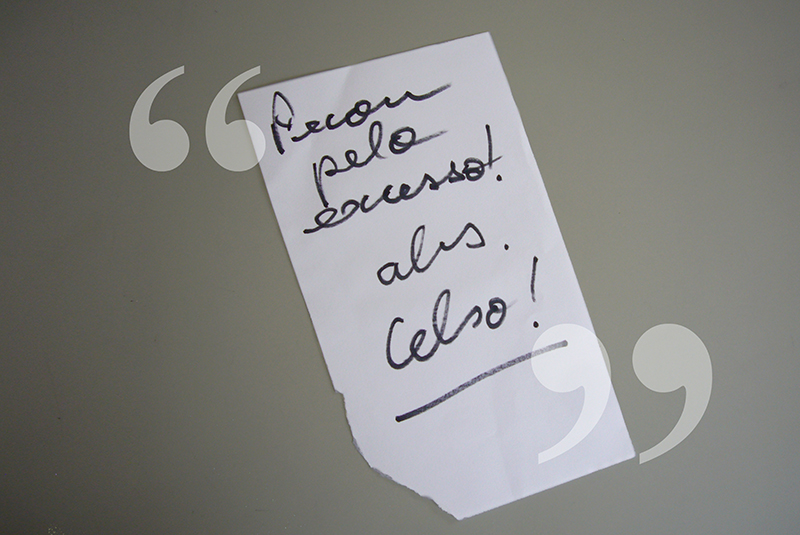 Pecou
pelo
excesso!
abs.
Celso!